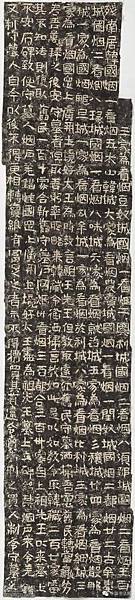 三家為看烟豆奴城國烟一看烟二奧利城國烟二看烟八須鄒城國烟二看烟五百
殘南居韓國烟一看烟五大山韓城六家為看烟農賣城國烟一看烟七閏奴城國烟二看烟廿二古牟婁
城國烟二看烟八瑑城國烟一看烟八味城六家為看烟就咨城五家為看烟彡穰城廿四家為看烟散那
城一家為國烟那旦城一家為看烟勾牟城一家為看烟於利城八家為看烟比利城三家為看烟細城三
家為看烟國罡上廣開土境好太王存時教言祖王先王但教取遠近舊民守墓洒掃吾慮舊民轉當羸劣
若吾萬年之後安守墓者但取吾躬巡所略來韓穢令備洒掃言教如此是以如教令取韓穢二百廿家慮
其不知法則復取舊民一百十家合新舊守墓戶國烟卅看烟三百都合三百卅家自上祖先王以來墓上
不安石碑致使守墓人烟戶差錯唯國罡上廣開土境好太王盡為祖先王墓上立碑銘其烟戶不令差錯
又制守墓人自今以後不得更相轉賣雖有富足之者亦不得擅買其有違令賣者刑之買人制令守墓之